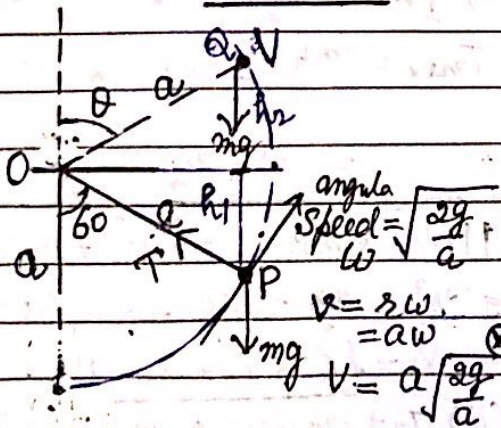 Q V
θ a
h₂
mg
O
60 a h₁
a T
P
mg
angula
Speed = √(2g/a)
ω
v = rω
= aω
V = a√(2g/a)